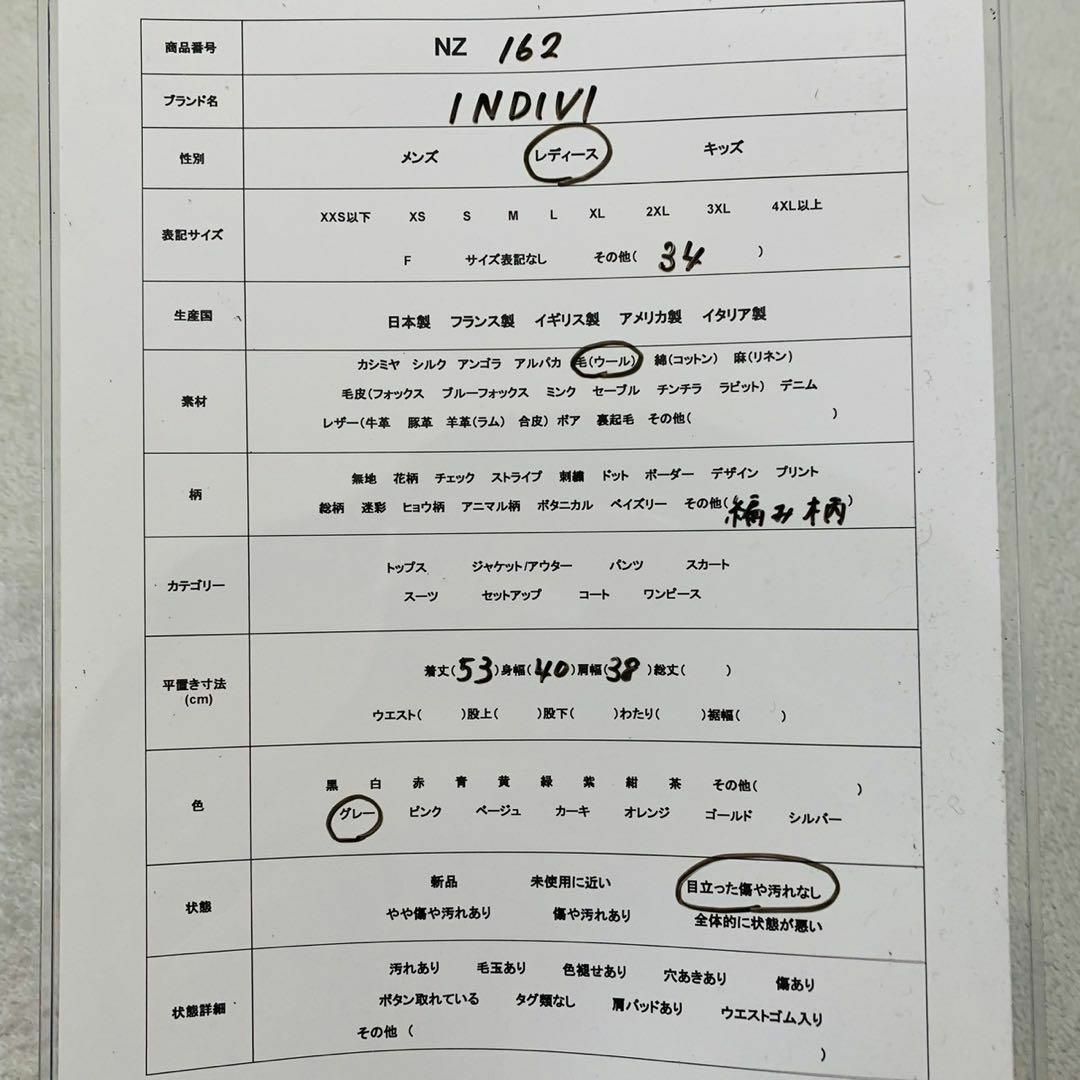 商品番号 NZ 162
ブランド名 INDIVI
性別 メンズ レディース キッズ
XXS以下 XS S M L XL 2XL 3XL 4XL以上
表記サイズ
F サイズ表記なし その他( 34 )
生産国 日本製 フランス製 イギリス製 アメリカ製 イタリア製
カシミヤ シルク アンゴラ アルパカ 毛(ウール) 綿(コットン) 麻(リネン)
素材 毛皮(フォックス ブルーフォックス ミンク セーブル チンチラ ラビット) デニム
レザー(牛革 豚革 羊革(ラム) 合皮) ボア 裏起毛 その他( )
無地 花柄 チェック ストライプ 刺繍 ドット ボーダー デザイン プリント
柄
総柄 迷彩 ヒョウ柄 アニマル柄 ボタニカル ペイズリー その他(編み柄)
トップス ジャケット/アウター パンツ スカート
カテゴリー
スーツ セットアップ コート ワンピース
着丈(53)身幅(40)肩幅(38)総丈( )
平置き寸法
(cm)
ウエスト( )股上( )股下( )わたり( )裾幅( )
黒 白 赤 青 黄 緑 紫 紺 茶 その他( )
色
グレー ピンク ベージュ カーキ オレンジ ゴールド シルバー
新品 未使用に近い 目立った傷や汚れなし
状態
やや傷や汚れあり 傷や汚れあり 全体的に状態が悪い
汚れあり 毛玉あり 色褪せあり 穴あきあり 傷あり
状態詳細 ボタン取れている タグ類なし 肩パッドあり ウエストゴム入り
その他 ( )